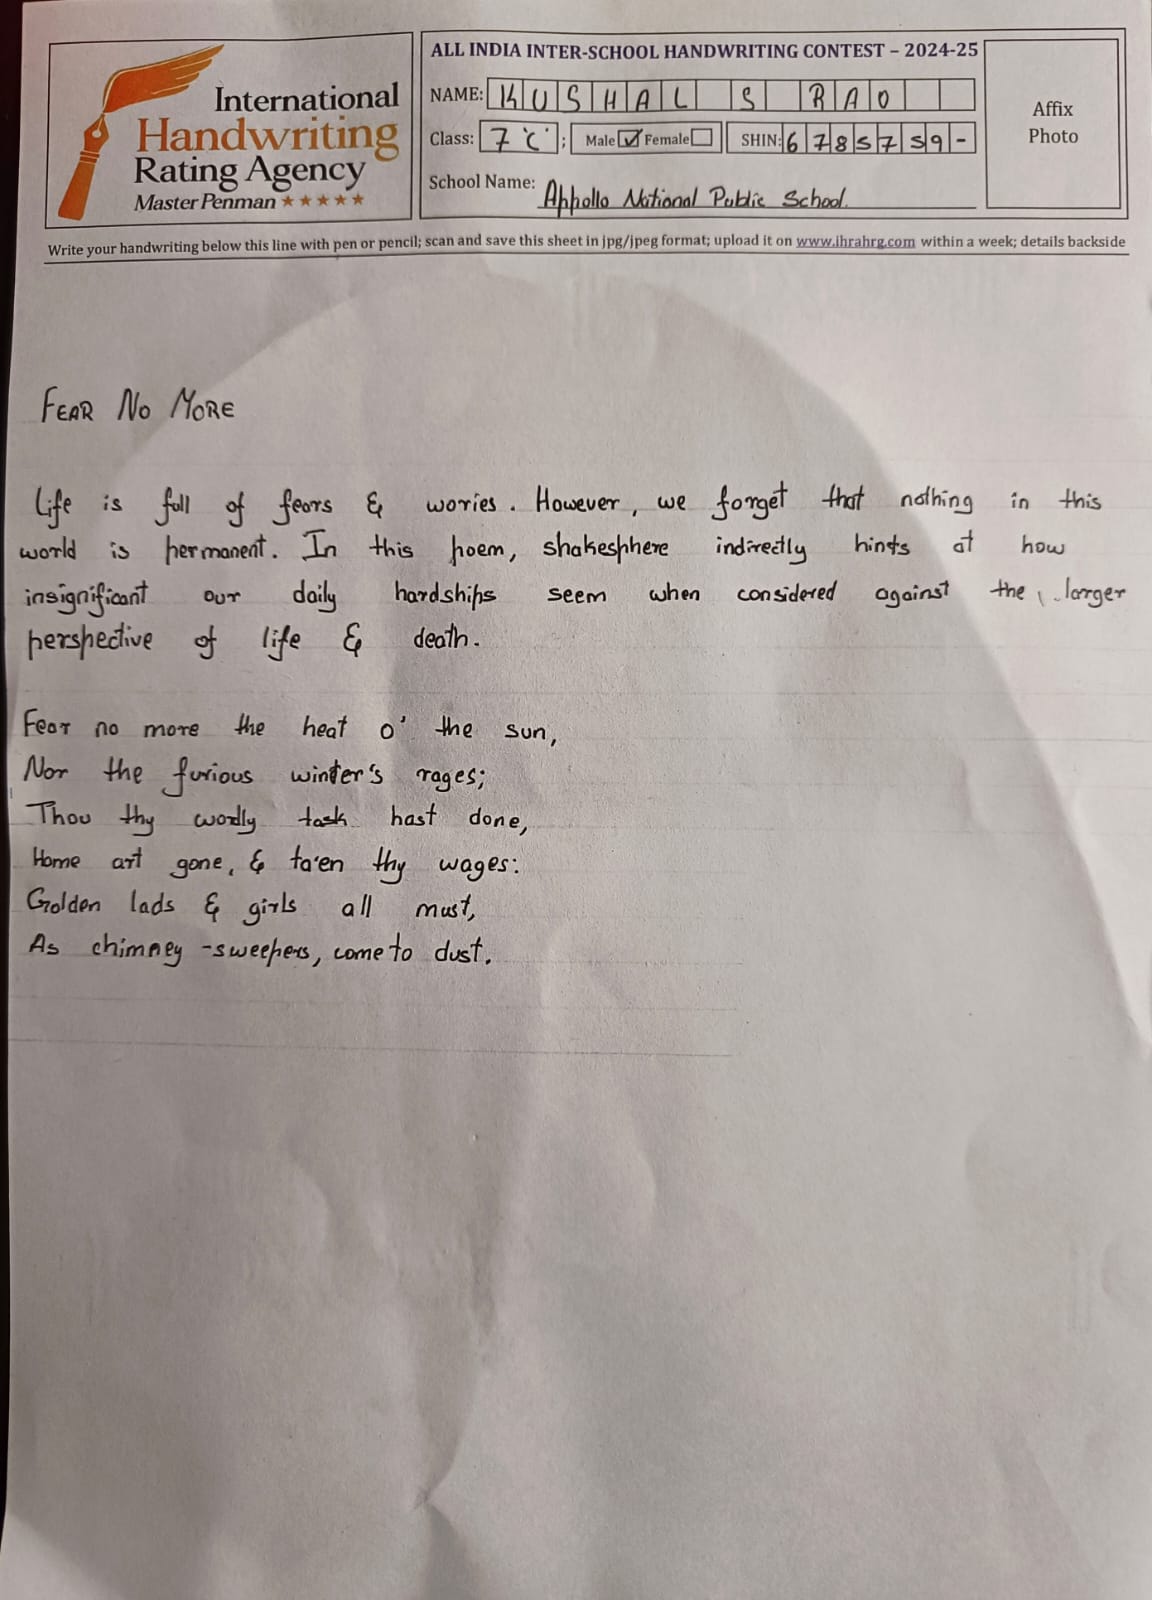 International
Handwriting
Rating Agency
Master Penman ★★★★★
ALL INDIA INTER-SCHOOL HANDWRITING CONTEST – 2024-25
NAME: KUSHAL S RAO
Class: 7 'C' ; Male ☑ Female ☐ SHIN: 6785759-
School Name: Appollo National Public School.
Affix
Photo
Write your handwriting below this line with pen or pencil; scan and save this sheet in jpg/jpeg format; upload it on www.ihrahrg.com within a week; details backside
FEAR NO MORE
Life is full of fears & wories. However, we forget that nothing in this
world is permanent. In this poem, shakesphere indirectly hints at how
insignificant our daily hardships seem when considered against the larger
perspective of life & death.
Fear no more the heat o' the sun,
Nor the furious winter's rages;
Thou thy wordly task hast done,
Home art gone, & ta'en thy wages:
Golden lads & girls all must,
As chimney-sweepers, come to dust.